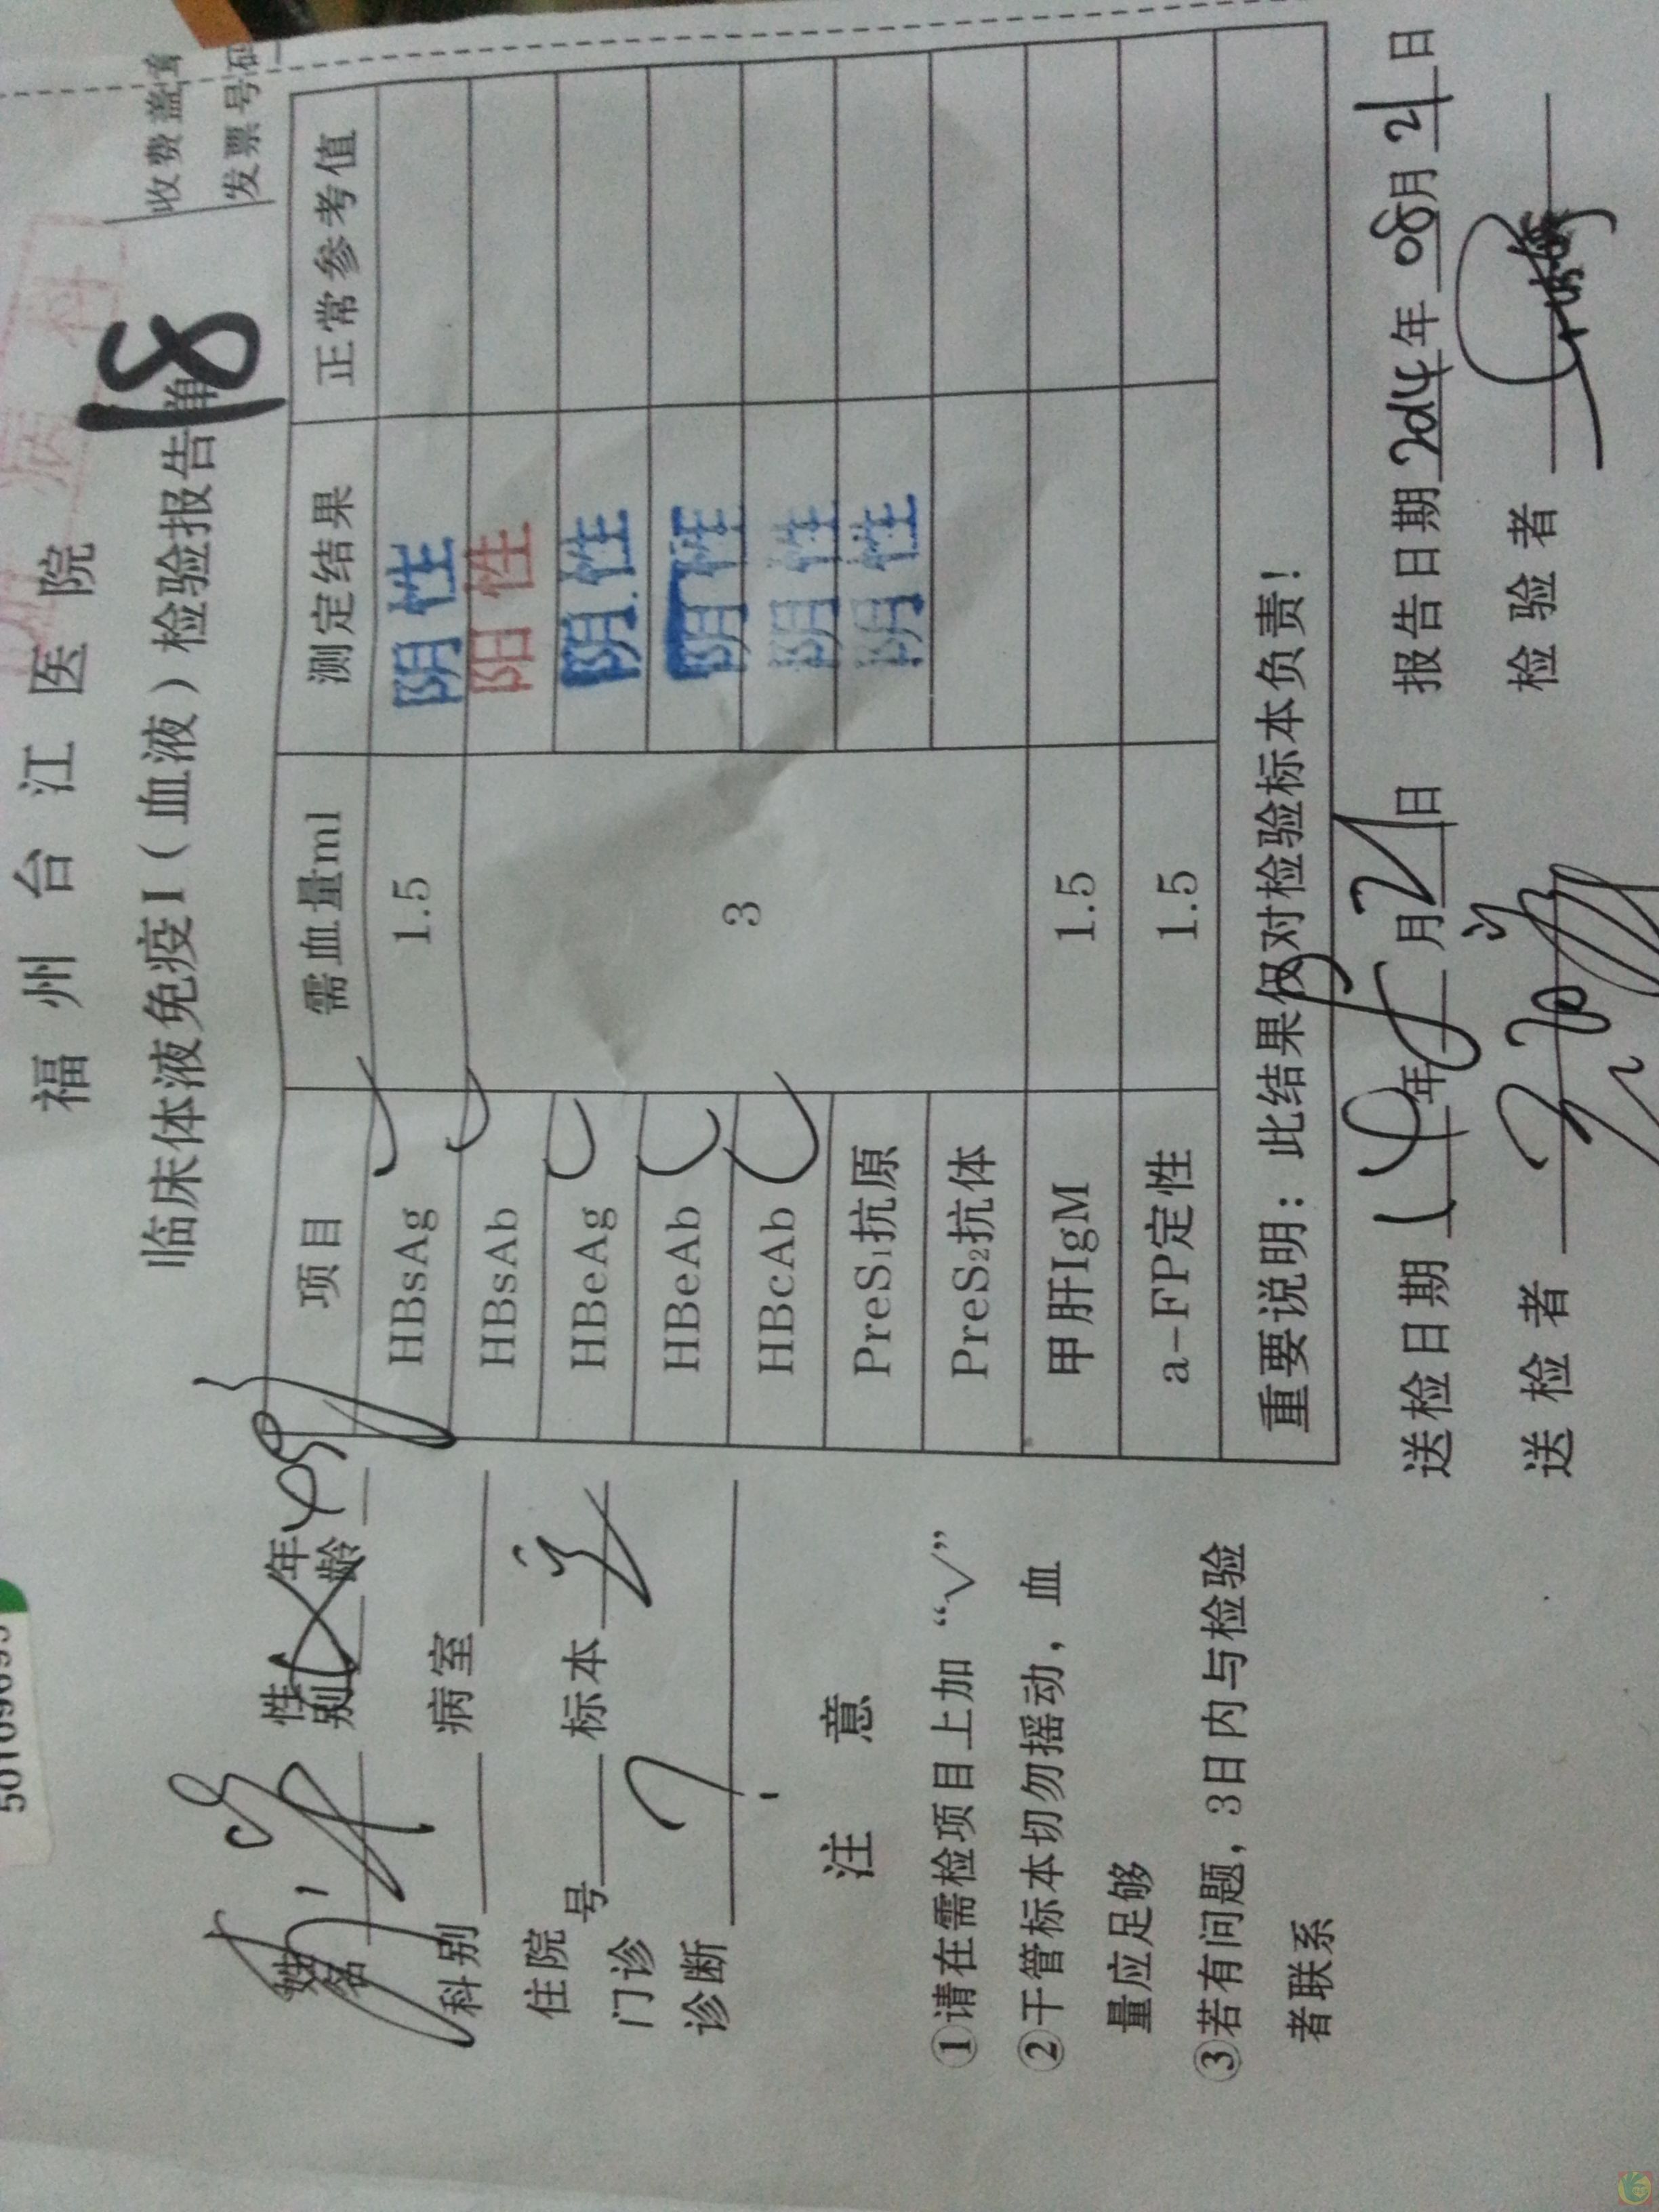 50109699
福州台江医院
临床体液免疫I(血液)检验报告单
18
收费盖章
发票号码
姓名 性别 女 年龄
科别 病室
住院号 标本
门诊诊断 ?
注意
①请在需检项目上加“√”
②干管标本切勿摇动，血
量应足够
③若有问题，3日内与检验
者联系
项目 需血量ml 测定结果 正常参考值
HBsAg 1.5 阴性
HBsAb 3 阳性
HBeAg 阴性
HBeAb 阴性
HBcAb 阴性
PreS₁抗原 阴性
PreS₂抗体
甲肝IgM 1.5
a-FP定性 1.5
重要说明：此结果仅对检验标本负责！
送检日期 14年8月21日 报告日期 2014年08月21日
送检者 检验者